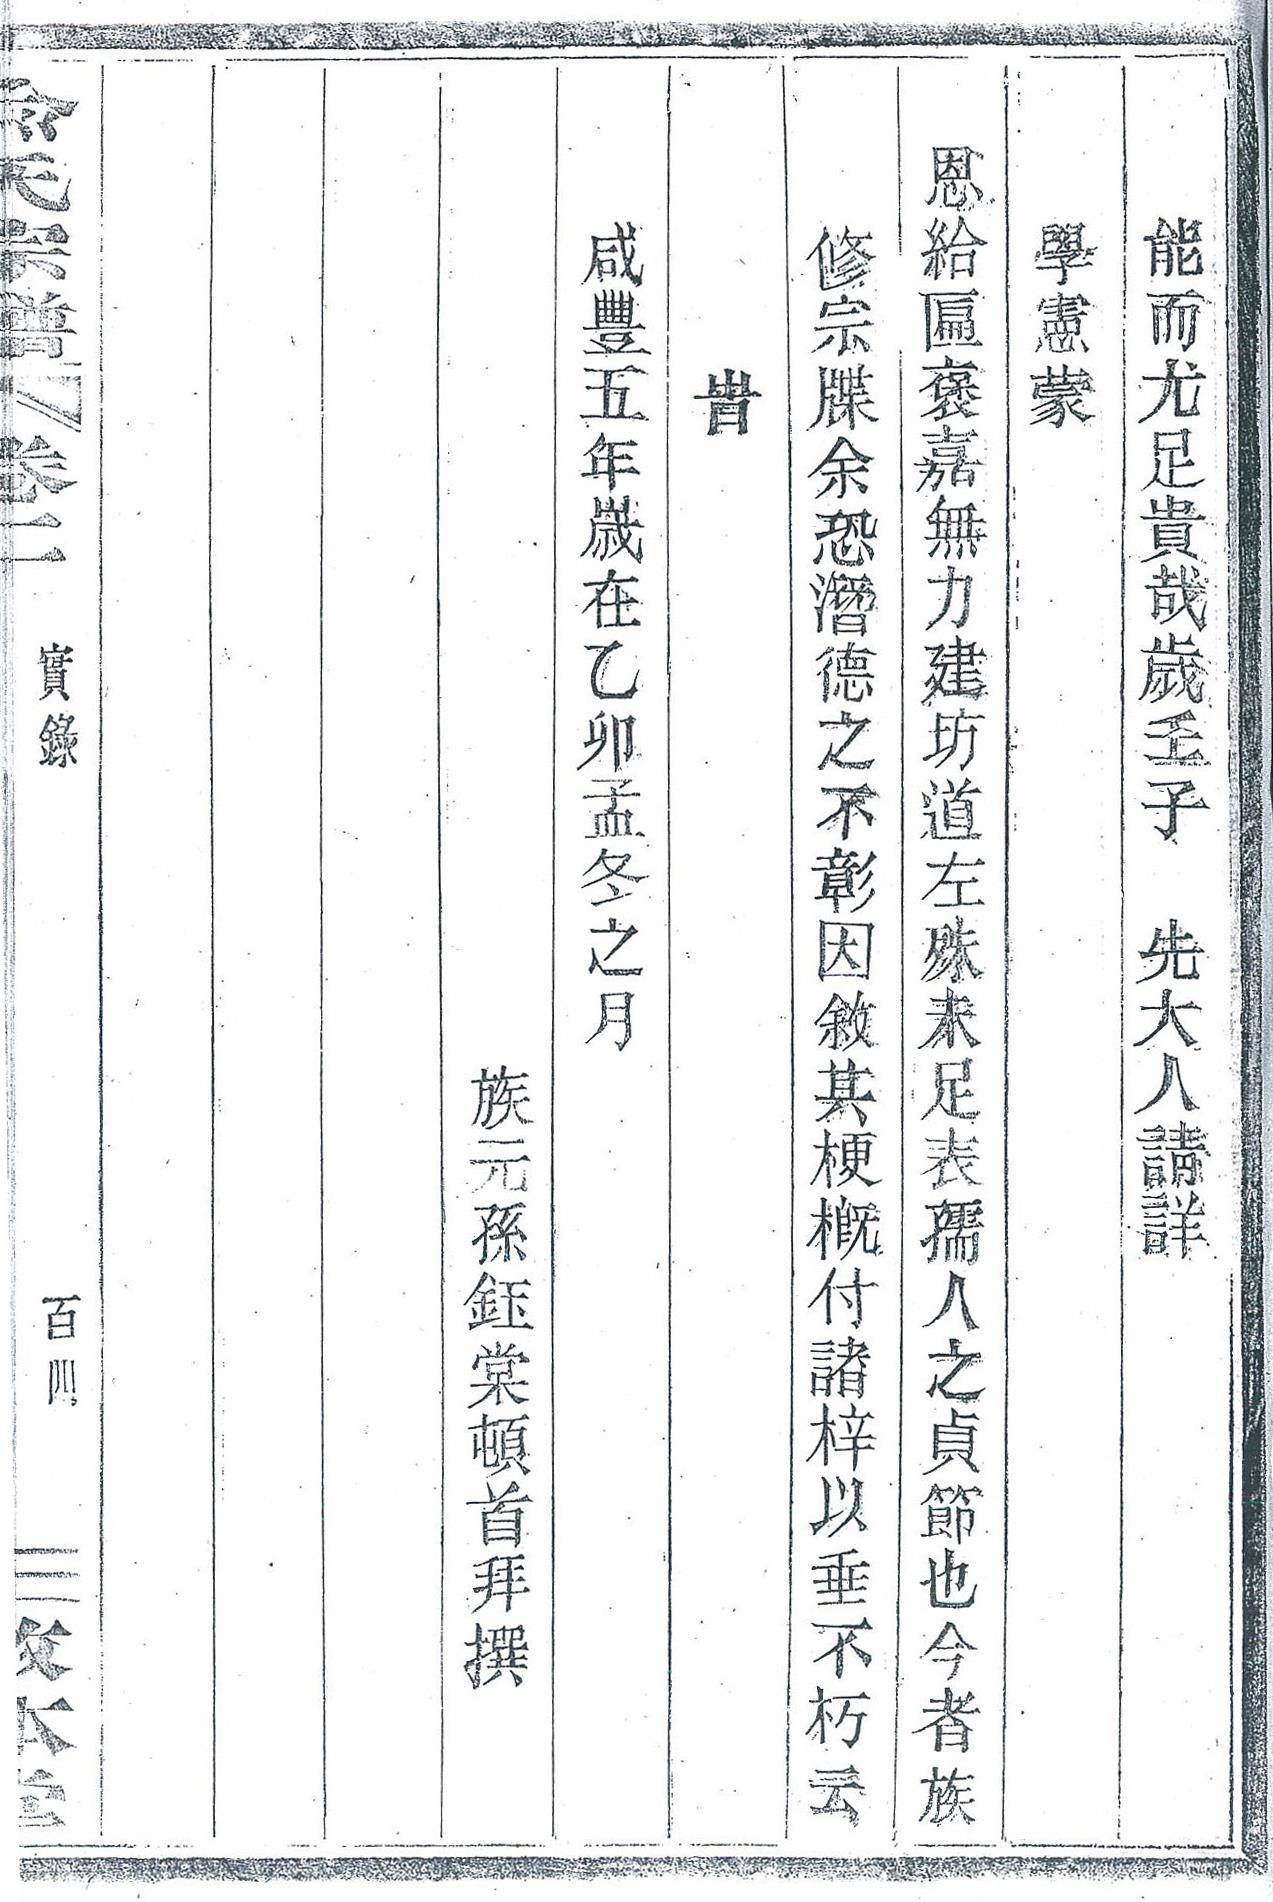 能而尤足貴哉歲壬子　先大人請詳
學憲蒙
恩給匾褒嘉無力建坊道左殊未足表孺人之貞節也今者族
修宗牒余恐潛德之不彰因敘其梗概付諸梓以垂不朽云
旹
咸豐五年歲在乙卯孟冬之月
族元孫鈺棠頓首拜撰
氏宗譜 卷二 實錄 百四 本堂